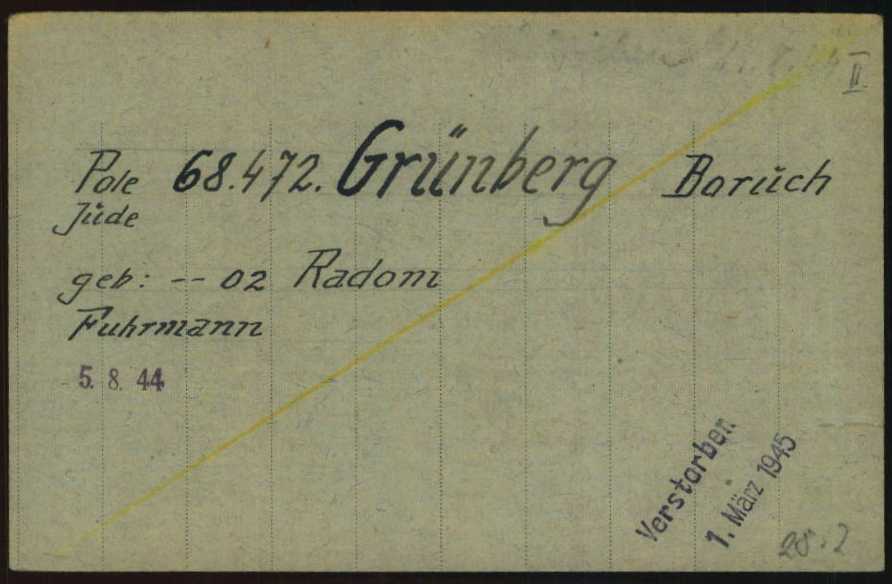 II
Pole 68.472. Grünberg Baruch
Jude
geb: -- 02 Radom
Fuhrmann
5. 8. 44
Verstorben
1. März 1945
28. 2